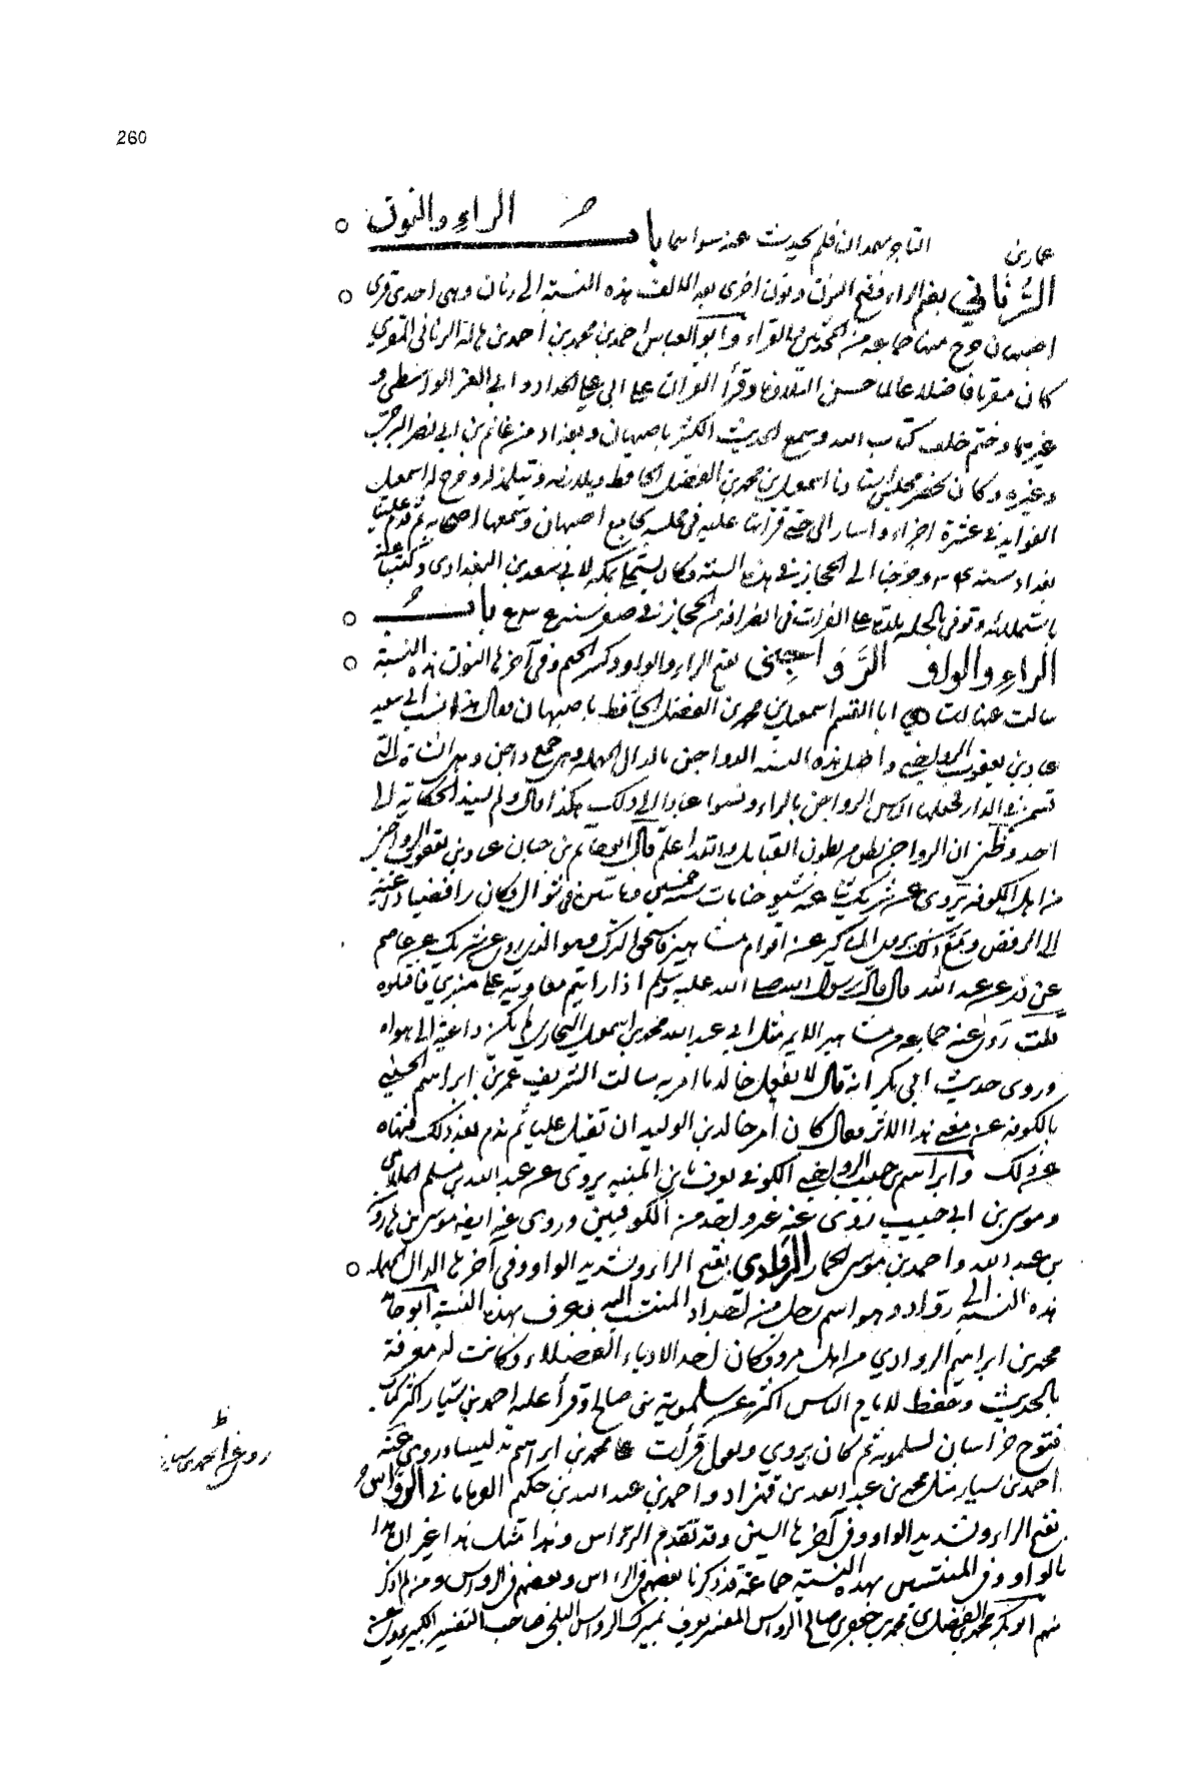 260
عمار بن التاجر بهمدان فلم يحدث عنه سواهما باب الراء والنون
الرُّنَاني بضم الراء وفتح النون ونون اخرى بعد الالف هذه النسبة الى رنان وهي احدى قرى
اصبهان خرج منها جماعة من المحدثين والقراء وابو العباس احمد بن محمد بن احمد بن هالة الرناني المقرئ
كان مقريا فاضلا عالما حسن التلاوة وقرأ القرآن على ابي علي الحداد وابي العز الواسطي و
غيرهما وختم خلق كتاب الله وسمع الحديث الكثير باصبهان وبغداد من غانم بن ابي نصر البرجي
وغيره وكان يحضر مجلس استاذنا اسمعيل بن محمد بن الفضل الحافظ ويلازمه ويتلمذ له وخرج له اسمعيل
الفوايد في عشرة اجزاء واشار الى حتى قرأت عليه في مجلسه بجامع اصبهان وسمعها اصحابه ثم قدم علينا
بغداد سنة وخرجنا الى الحجاز في هذه السنة وكان يستملي بمكة لابي سعد بن البغدادي وكتبنا
باستملائه وتوفي بالحلة بلدة على الفرات في انصرافه من الحجاز في صفر سنة باب
الراء والواو الرَّوَاجِنى بفتح الراء والواو وكسر الجيم وفي آخرها النون هذه النسبة
سالت عنها استاذي ابا القسم اسمعيل بن محمد بن الفضل الحافظ باصبهان فقال هذا نسب ابي سعيد
عباد بن يعقوب الرواجني واصل هذه النسبة الدواجن بالدال المهملة وهي جمع داجن وهي الشاة التي
تسمن في الدار فجعلها الناس الرواجن بالراء ونسبوا عبادا الى ذلك هكذا قال ولم يسند الحكاية الى
احد وظني ان الرواجن بطن من بطون القبايل والله اعلم قال ابو حاتم بن حبان عباد بن يعقوب الرواجني
من اهل الكوفة يروي عن شريك ثنا عنه شيوخنا مات سنة خمسين وماتين في شوال وكان رافضيا داعية
الى الرفض ومع ذلك يروي المناكير عن اقوام مشاهير فاستحق الترك وهو الذي روى عن شريك عن عاصم
عن زر عن عبد الله قال قال رسول الله صلى الله عليه وسلم اذا رايتم معاوية على منبري فاقتلوه
قلت روى عنه جماعة من مشاهير الايمة مثل ابي عبد الله محمد بن اسمعيل البخاري لم يكن داعية الى هواه
وروى حديث ابي بكر انه قال لا يفعل خالد ما امر به سالت الشريف عمر بن ابراهيم الحسيني
بالكوفة عن معنى هذا الاثر فقال كان امر خالد بن الوليد ان يقتل عليا ثم ندم بعد ذلك فنهاه
عن ذلك وابراهيم بن حبيب الرواجني الكوفي يعرف بابن الميتة يروي عن عبد الله بن مسلم الملائي
وموسى بن ابي حبيب روى عنه غير واحد من الكوفيين وروى عنه ايضا موسى بن هارون
بن عبد الله واحمد بن موسى الحمار الرَّوَّادي بفتح الراء وتشديد الواو وفي آخرها الدال المهملة
هذه النسبة الى رواد وهو اسم رجل من اجداد المنتسب اليه وعرف بهذه النسبة ابو حامد
محمد بن ابراهيم الروادي من اهل مرو وكان احد الادباء الفضلاء وكانت له معرفة
بالحديث وحفظ لايام الناس اكثر عن سلموية بن صالح وقرأ عليه احمد بن سيار اكثر كتاب
فتوح خراسان لسلموية ثم كان يروي ويقول قرأت على محمد بن ابراهيم وروى عنه
احمد بن سيار مثل محمد بن عبد الله بن قهزاد واحمد بن عبد الله بن حكيم الفرياناني الرَّوَّاسي
بفتح الراء وتشديد الواو وفي آخرها السين وقد تقدم الراس وهذا مثل هذا غير ان هذا
بالواو وفي المنتسبين بهذه النسبة جماعة قد ذكرنا بعضهم في الراس وبعضهم في الرواس ومن لم اذكر
منهم ابو بكر محمد بن الفضل بن محمد بن جعفر بن صالح الرواس المفسر يعرف بميرك الرواس البلخي صاحب التفسير الكبير يروي عن
ظ
روى عن احمد بن سيار